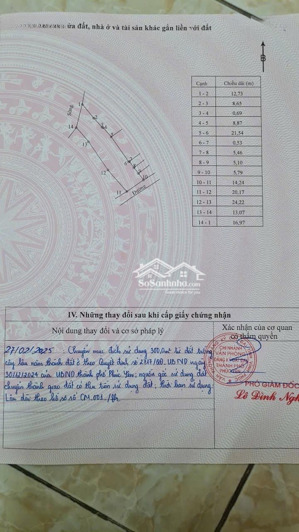 ửa đất, nhà ở và tài sản khác gắn liền với đất
Cạnh Chiều dài (m)
1 - 2 12,73
2 - 3 8,65
3 - 4 0,69
4 - 5 8,87
5 - 6 21,54
6 - 7 0,53
7 - 8 5,46
8 - 9 5,10
9 - 10 5,79
10 - 11 14,24
11 - 12 20,17
12 - 13 24,22
13 - 14 13,07
14 - 1 16,97
1
14
13
12
11
Đường
SoSanNha.com
IV. Những thay đổi sau khi cấp giấy chứng nhận
Nội dung thay đổi và cơ sở pháp lý
Xác nhận của cơ quan
có thẩm quyền
27/02/2025 Chuyển mục đích sử dụng 300,0m² từ đất trồng
cây lâu năm thành đất ở theo Quyết định số UBND ngày
30/12/2024 của UBND thành phố Phúc Yên; nguồn gốc sử dụng đất
chuyển thành giao đất có thu tiền sử dụng đất, thời hạn sử dụng
Lâu dài theo hồ sơ số CM.001
PHÓ GIÁM ĐỐC
Lê Đình